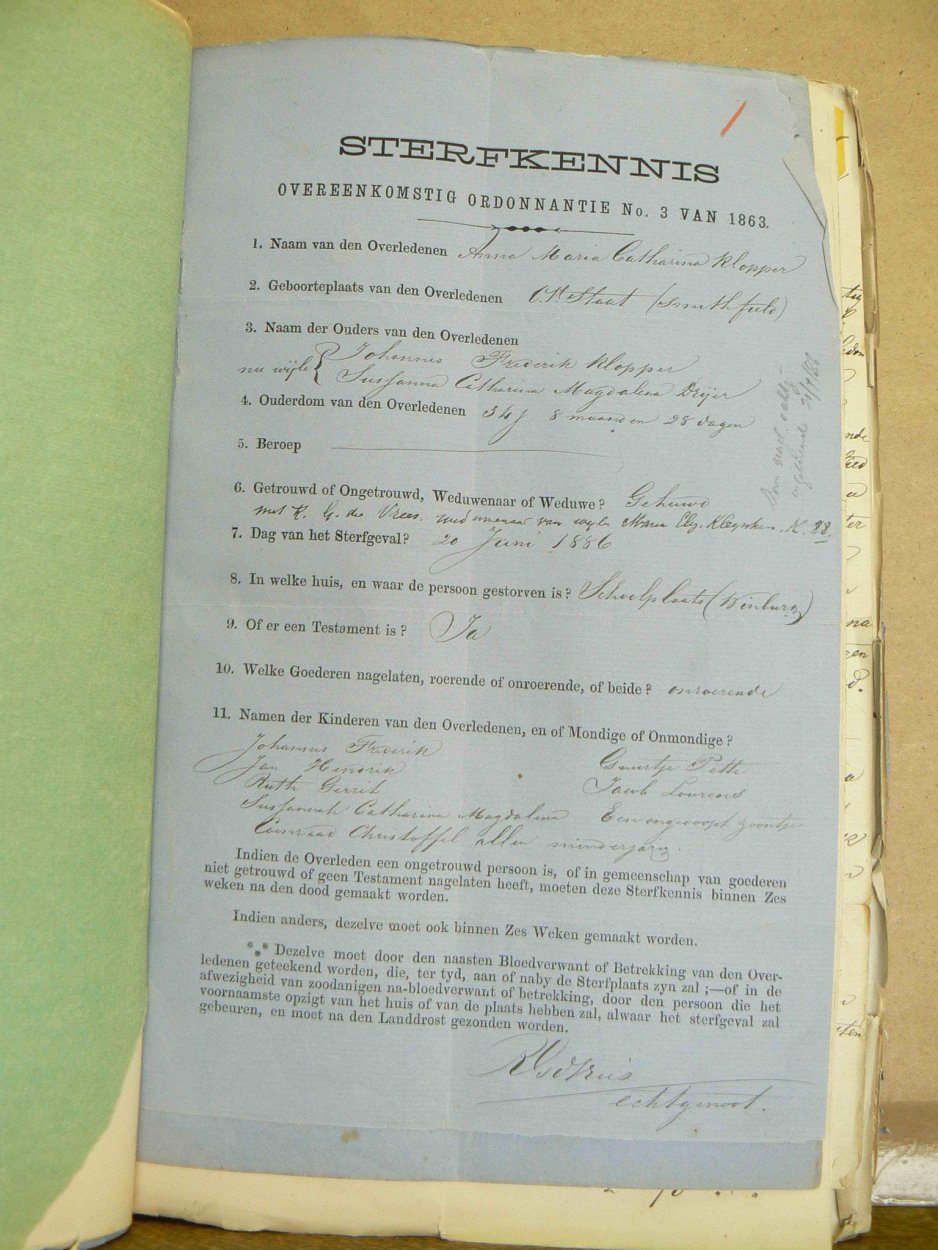 STERFKENNIS
OVEREENKOMSTIG ORDONNANTIE No. 3 VAN 1863.
1. Naam van den Overledenen Anna Maria Catharina Klopper
2. Geboorteplaats van den Overledenen O. Staat (Smithfield)
3. Naam der Ouders van den Overledenen
Johannes Frederik Klopper
nu wijle { Sussanna Catharina Magdalena Drijer
4. Ouderdom van den Overledenen 34 j 8 maanden 28 dagen
5. Beroep
6. Getrouwd of Ongetrouwd, Weduwenaar of Weduwe? Gehuwd
met R. G. de Vries, weduwenaar van wyle Maria Eliz.
7. Dag van het Sterfgeval? 20 Juni 1886
8. In welke huis, en waar de persoon gestorven is? Schoolplaats (Winburg)
9. Of er een Testament is? Ja
10. Welke Goederen nagelaten, roerende of onroerende, of beide? onroerende
11. Namen der Kinderen van den Overledenen, en of Mondige of Onmondige?
Johannes Frederik
Jan Hendrik
Ruth Gerrit
Sussannah Catharina Magdalena
Coenraad Christoffel allen minderjarig.
Geertje
Jacob Lourens
Een ongedoopt zoontje
Indien de Overleden een ongetrouwd persoon is, of in gemeenschap van goederen
niet getrouwd of geen Testament nagelaten heeft, moeten deze Sterfkennis binnen Zes
weken na den dood gemaakt worden.
Indien anders, dezelve moet ook binnen Zes Weken gemaakt worden.
*** Dezelve moet door den naasten Bloedverwant of Betrekking van den Over-
ledenen geteekend worden, die, ter tyd, aan of naby de Sterfplaats zyn zal ;—of in de
afwezigheid van zoodanigen na-bloedverwant of betrekking, door den persoon die het
voornaamste opzigt van het huis of van de plaats hebben zal, alwaar het sterfgeval zal
gebeuren, en moet na den Landdrost gezonden worden.
echtgenoot.